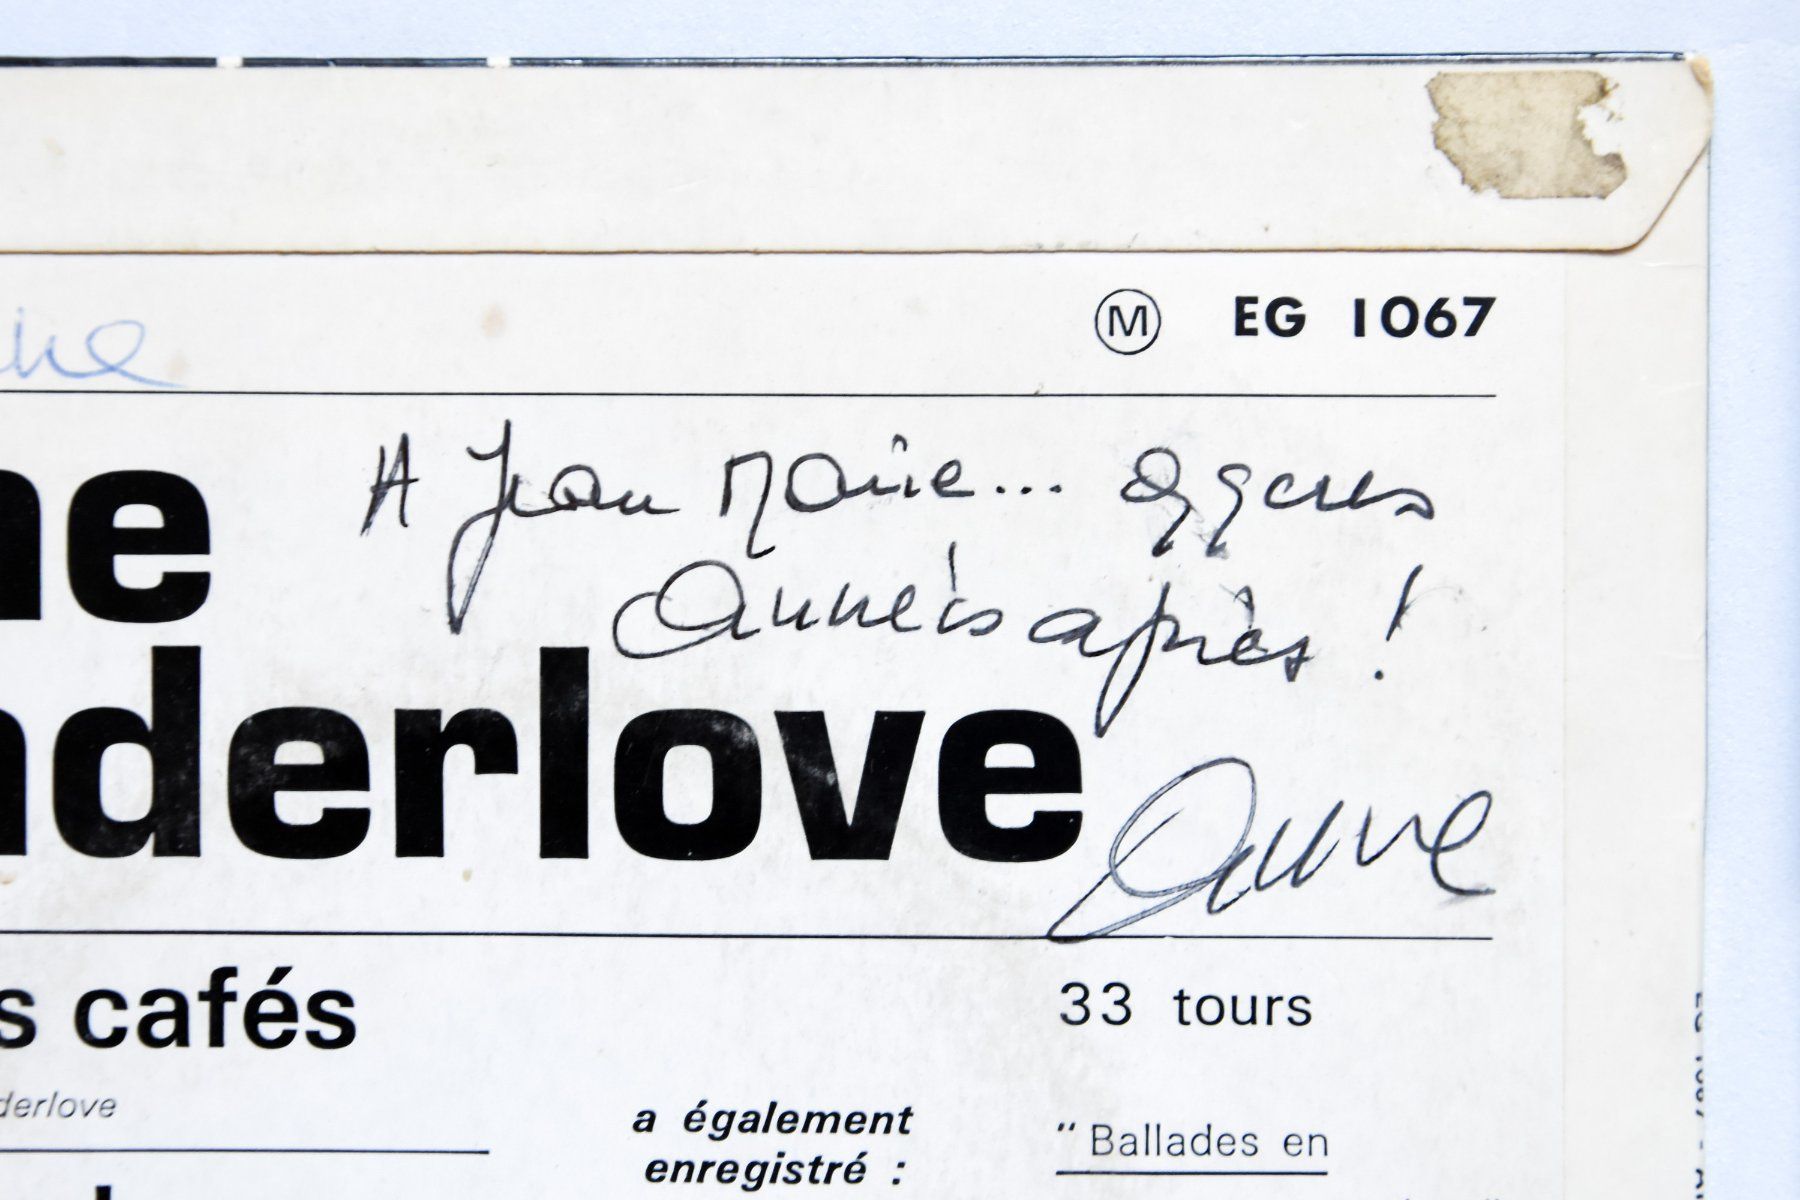 EG 1067
M
A Jean Marie... qques
années après !
ne
nderlove
Anne
s cafés
33 tours
derlove
a également
enregistré :
" Ballades en